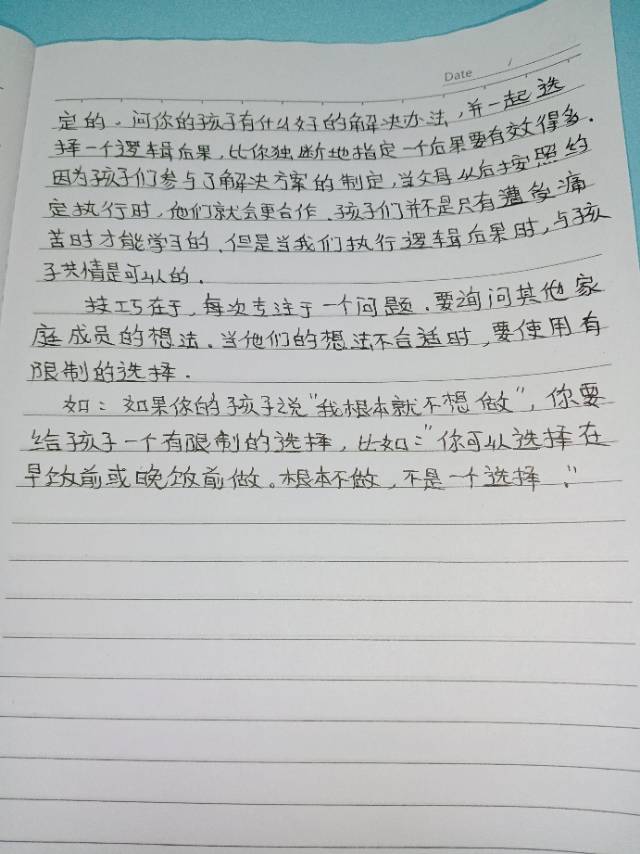 Date /
定的。问你的孩子有什么好的解决办法，并一起选
择一个逻辑后果，比你独断地指定一个后果要有效得多。
因为孩子们参与了解决方案的制定，当父母以后按照约
定执行时，他们就会更合作。孩子们并不是只有遭受痛
苦时才能学习的，但是当我们执行逻辑后果时，与孩
子共情是可以的。
技巧在于，每次专注于一个问题。要询问其他家
庭成员的想法。当他们的想法不合适时，要使用有
限制的选择。
如：如果你的孩子说“我根本就不想做”，你要
给孩子一个有限制的选择，比如：“你可以选择在
早饭前或晚饭前做。根本不做，不是一个选择。”